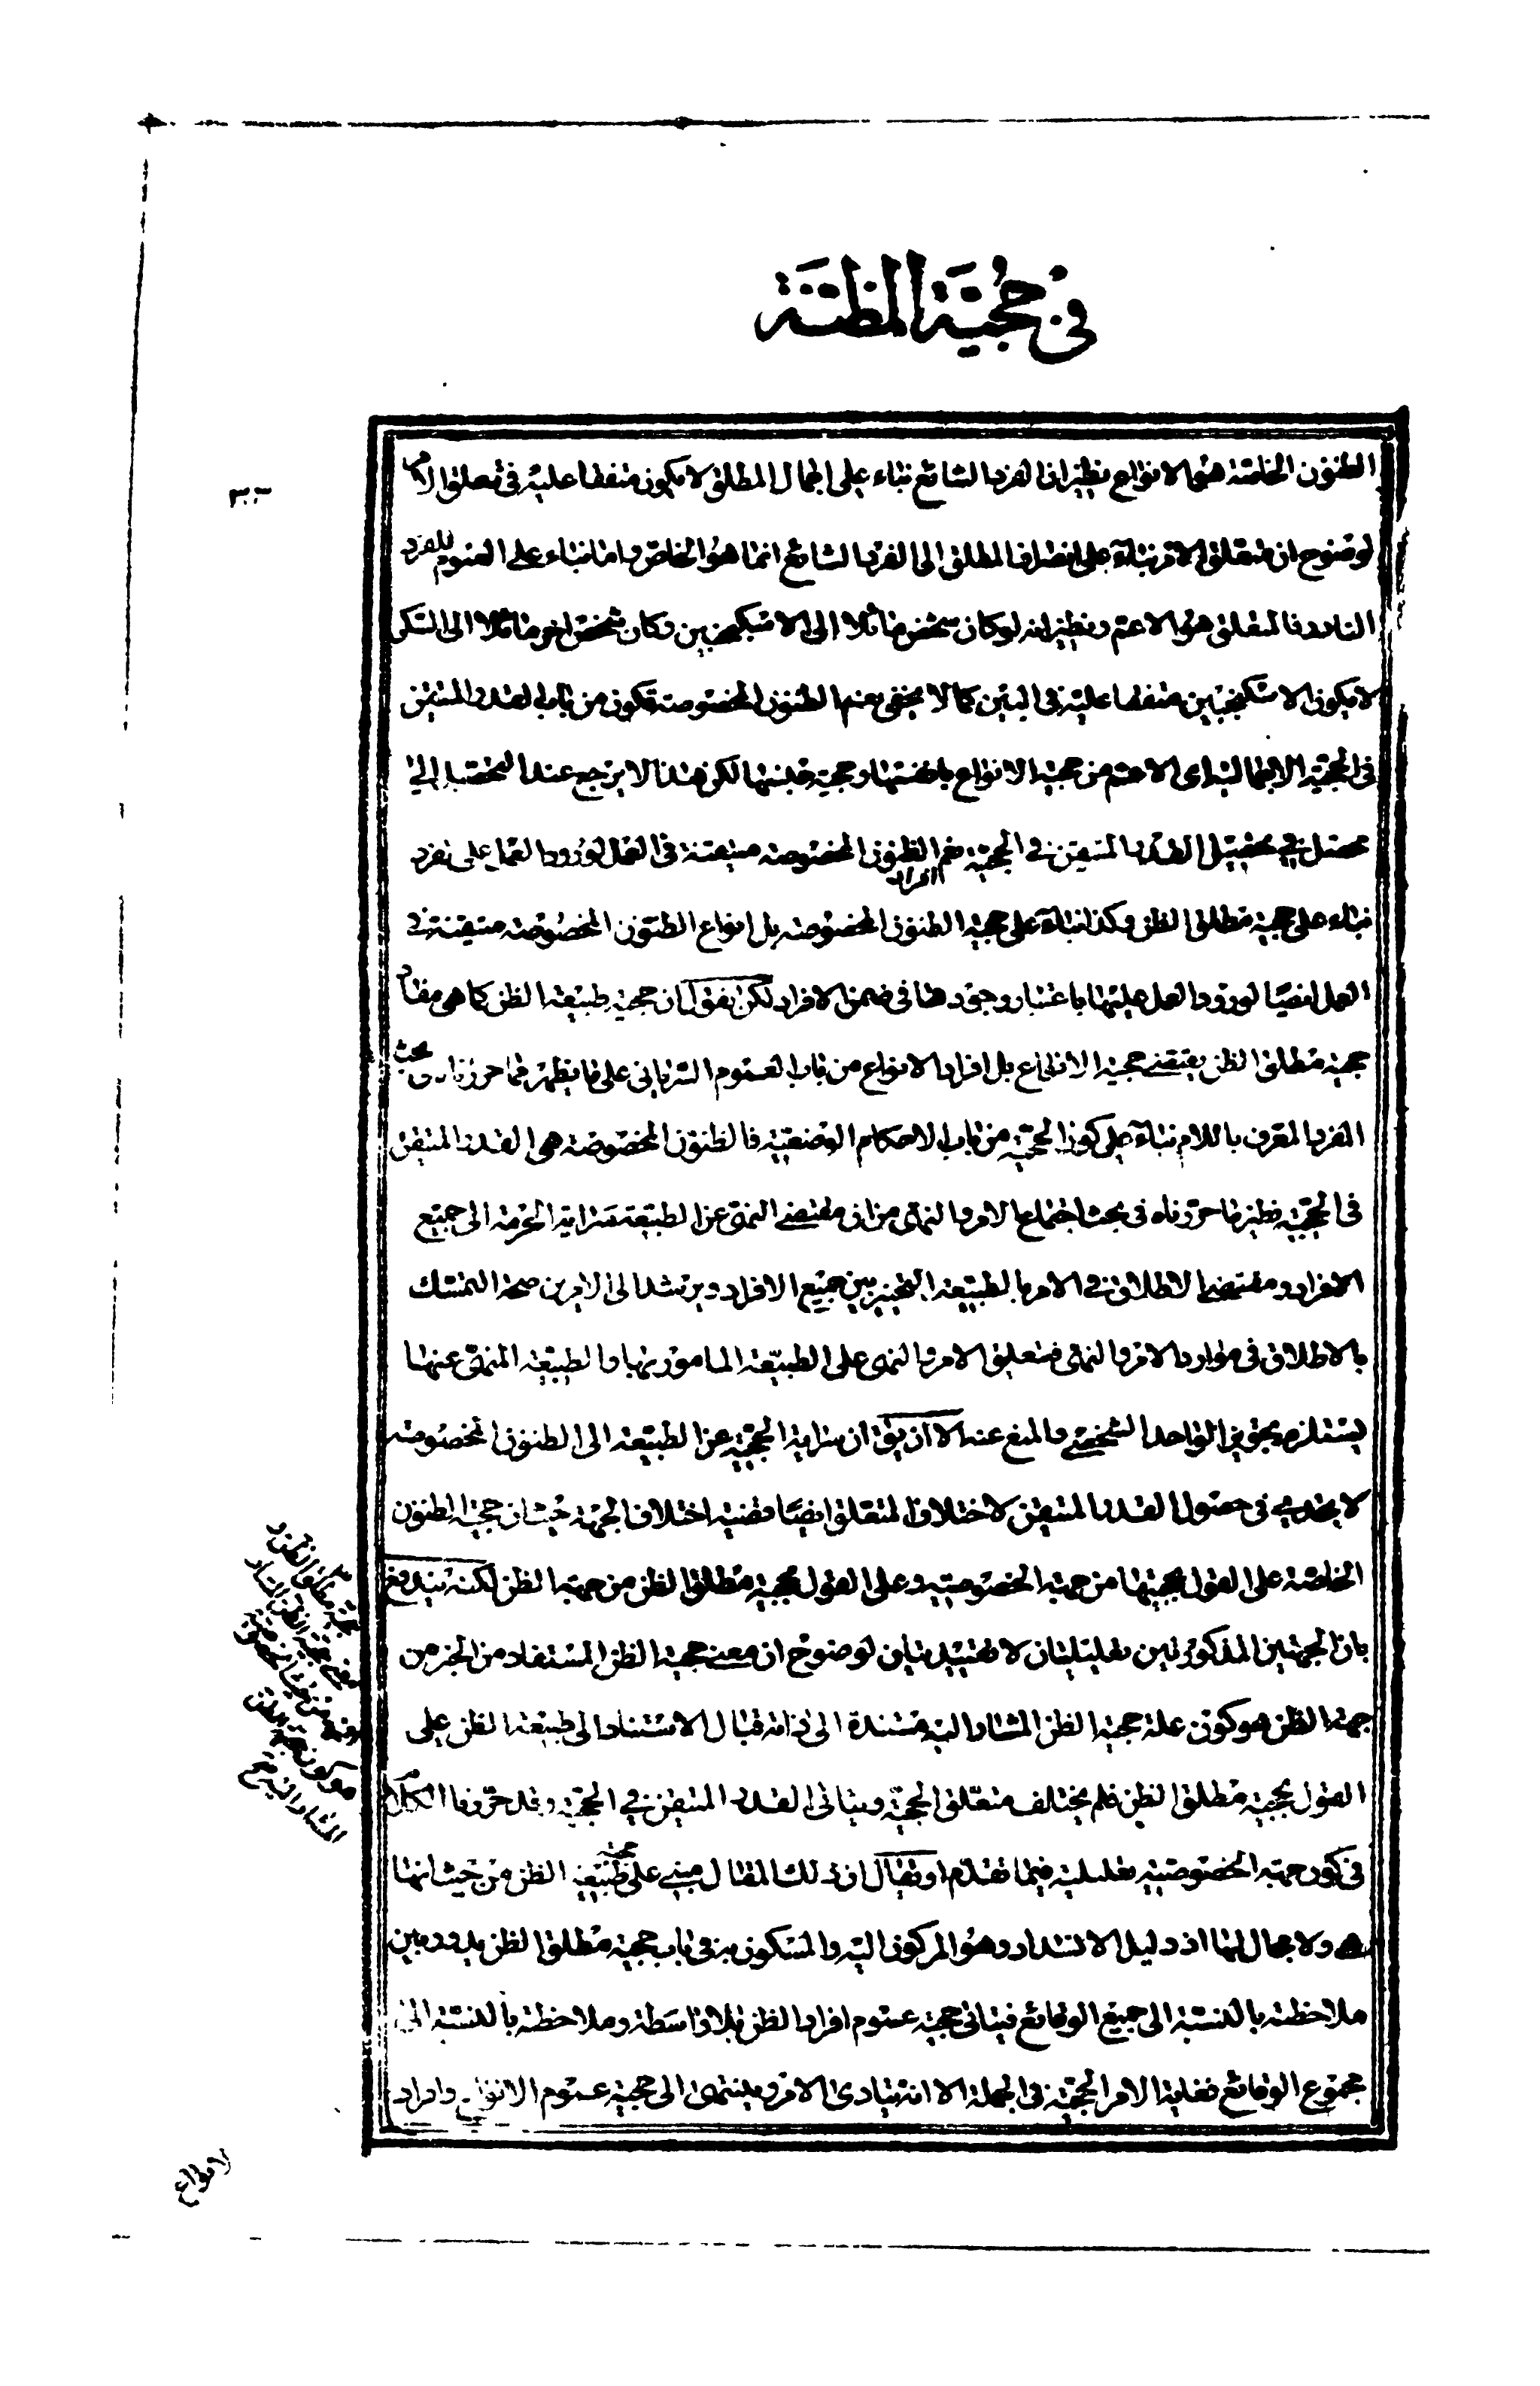 في حجية المظنة
الظنون الخاصة هو الانواع نظير ان الفرد الشائع بناء على اجمال المطلق لا يكون متفقا عليه فى تعلق الامر
لوضوح ان متعلق الامر بناء على انصراف المطلق الى الفرد الشائع انما هو الخاص واما بناء على العموم للفرد
النادر فالمتعلق هو الاعم ونظير انه لو كان شخص مائلا الى الاسكنجبين وكان شخص اخر مائلا الى السكر
لا يكون الاسكنجبين متفقا عليه فى البين كما لا يخفى نعم الظنون المخصوصة تكون من باب القدر المتيقن
فى الحجية الاجمالية اى الاعم من حجية الانواع بانفسها وحجية جنسها لكن هذا لا يرجع عند التحصيل الى
محصل فى تحصيل القدر المتيقن فى الحجية نعم افراد الظنون المخصوصة متيقنة فى العمل لورود العمل على الفرد
بناء على حجية مطلق الظن وكذا بناء على حجية الظنون المخصوصة بل انواع الظنون المخصوصة متيقنة فى
العمل ايضا لورود العمل عليها باعتبار وجودها فى ضمن الافراد لكن نقول ان حجية طبيعة الظن كما هى مفاد
حجية مطلق الظن يقتضى حجية الانواع بل افراد الانواع من باب العموم السريانى على ما يظهر مما حررناه فى بحث
المفرد المعرف باللام بناء على كون الحجية من باب الاحكام الوضعية فالظنون المخصوصة هى القدر المتيقن
فى الحجية نظير ما حررناه فى بحث اجتماع الامر والنهى من ان مقتضى النهى عن الطبيعة سراية الحرمة الى جميع
الافراد ومقتضى الاطلاق فى الامر بالطبيعة التخيير بين جميع الافراد ويرشد الى الامرين صحة التمسك
بالاطلاق فى موارد الامر والنهى فتعلق الامر والنهى على الطبيعة المامور بها والطبيعة المنهى عنها
يستلزم تجويز الواحد الشخصى والمنع عنه الا ان يق ان سراية الحجية عن الطبيعة الى الظنون المخصوصة
لا يجدى فى حصول القدر المتيقن لاختلاف المتعلق ايضا قضية اختلاف الجهة حيث ان حجية الظنون
الخاصة على القول بحجيتها من جهة الخصوصية وعلى القول بحجية مطلق الظن من جهة الظن لكنه يندفع
بان الجهتين المذكورتين تعليليتان لا تقييديتان لوضوح ان معنى حجية الظن المستفاد من الخبر من
جهة الظن هو كون علة حجية الظن المشار اليه مستندة الى ذاته قبال الاستناد الى طبيعة الظن على
القول بحجية مطلق الظن فلم يختلف متعلق الحجية ويتاتى القدر المتيقن فى الحجية وقد حررنا الكلام
فى كون جهة الخصوصية تعليلية فيما تقدم او يقال ان ذلك المقال مبنى على حجية طبيعة الظن من حيث انها
هى ولا مجال لها اذ دليل الانسداد وهو المركون اليه والمسكون به فى باب حجية مطلق الظن يدور بين
ملاحظته بالنسبة الى جميع الوقائع فيتاتى حجية عموم افراد الظن بلا واسطة وملاحظته بالنسبة الى
مجموع الوقائع فغاية الامر الحجية فى الجملة الا انه يتادى الامر وينتهى الى حجية عموم الانواع وافراد
المشار اليه
الانواع